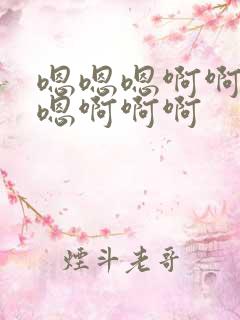 嗯嗯嗯啊啊
嗯啊啊啊
煙斗老哥